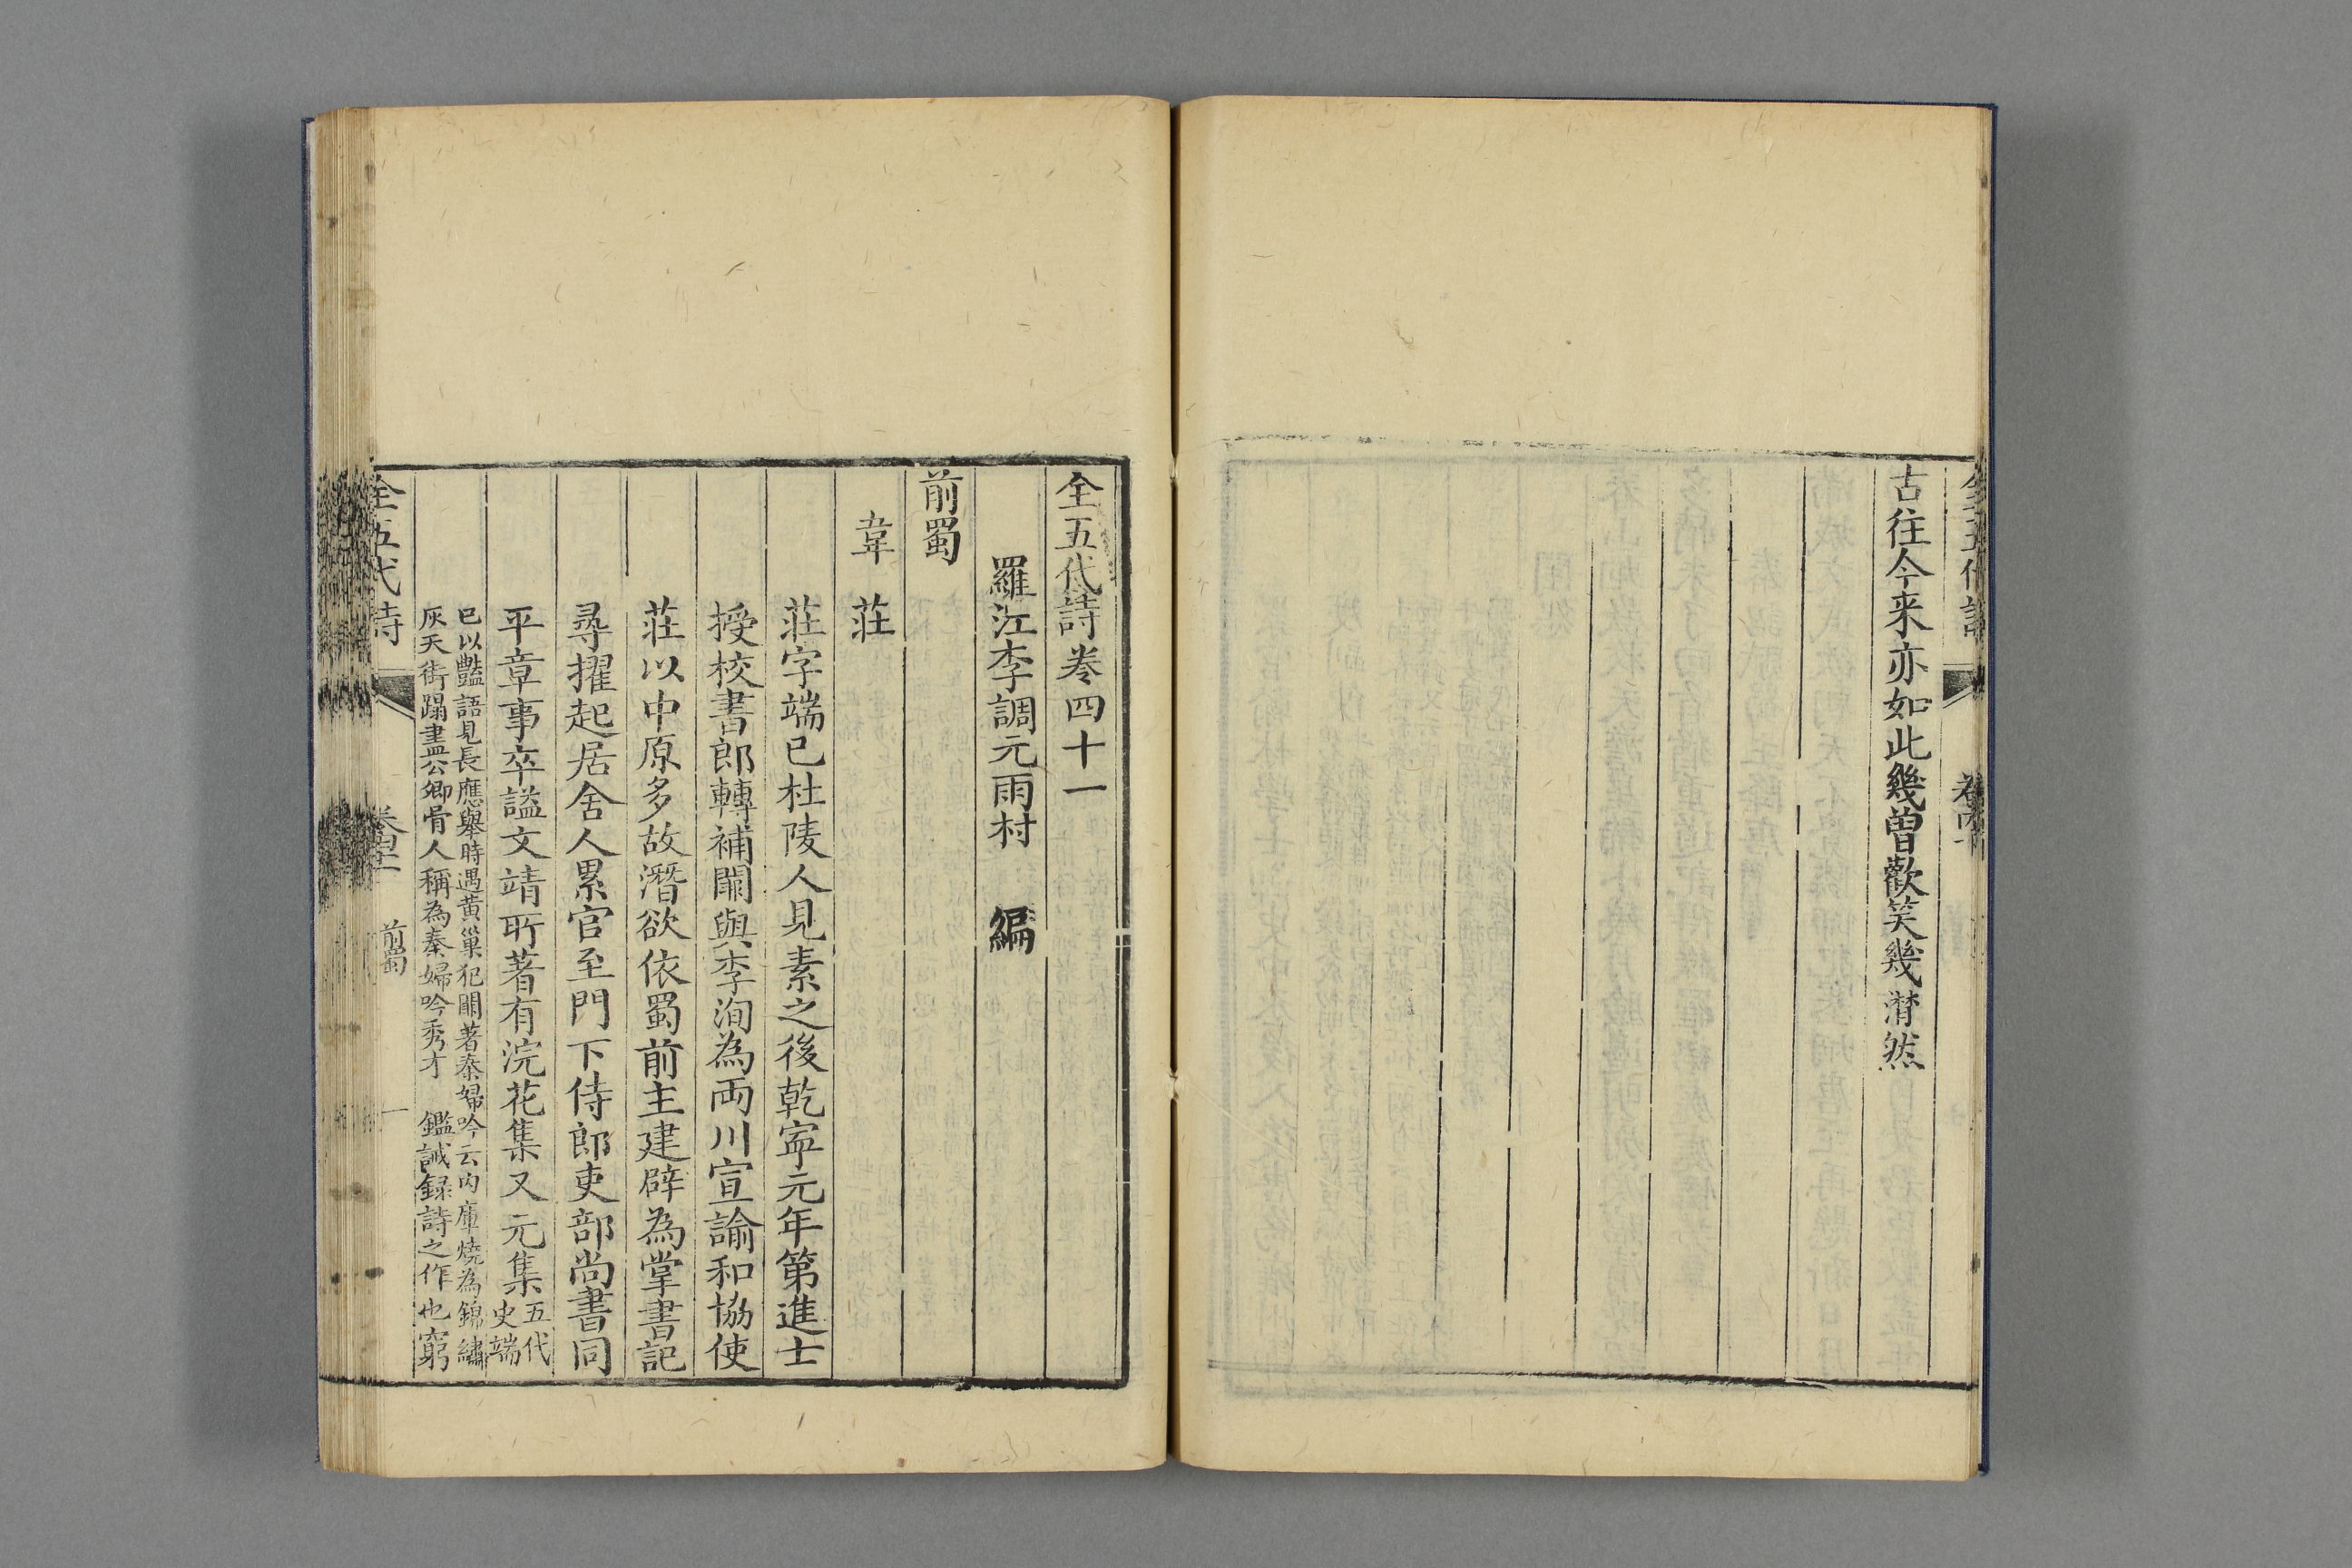 古往今来亦如此幾曽歡笑幾潸然
全五代詩卷四十一
羅江李調元雨村　編
前蜀
韋　莊
莊字端已杜陵人見素之後乾寧元年第進士
授校書郎轉補闕與李洵為兩川宣諭和協使
莊以中原多故潛欲依蜀前主建辟為掌書記
尋擢起居舍人累官至門下侍郎吏部尚書同
平章事卒謚文靖所著有浣花集又元集五代
史端
已以豔語見長應舉時遇黄巢犯闕著秦婦吟云内庫燒為錦繡
灰天街蹋盡公卿骨人稱為秦婦吟秀才　鑑誡録詩之作也窮
全五代詩
前蜀
一